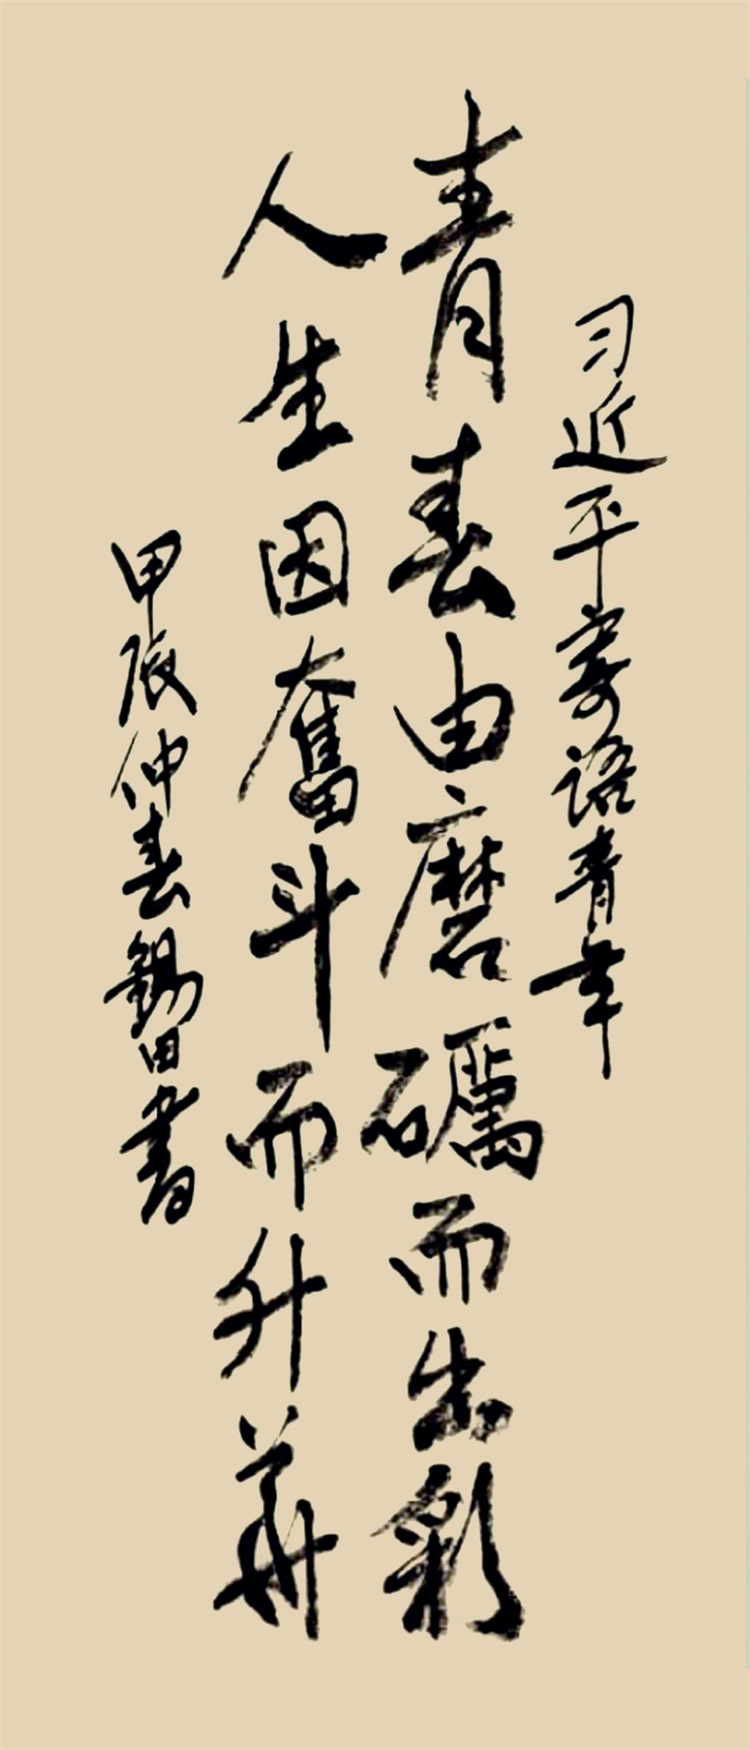 习近平寄语青年
青春由磨礪而出彩
人生因奮斗而升華
甲辰仲春錫田書